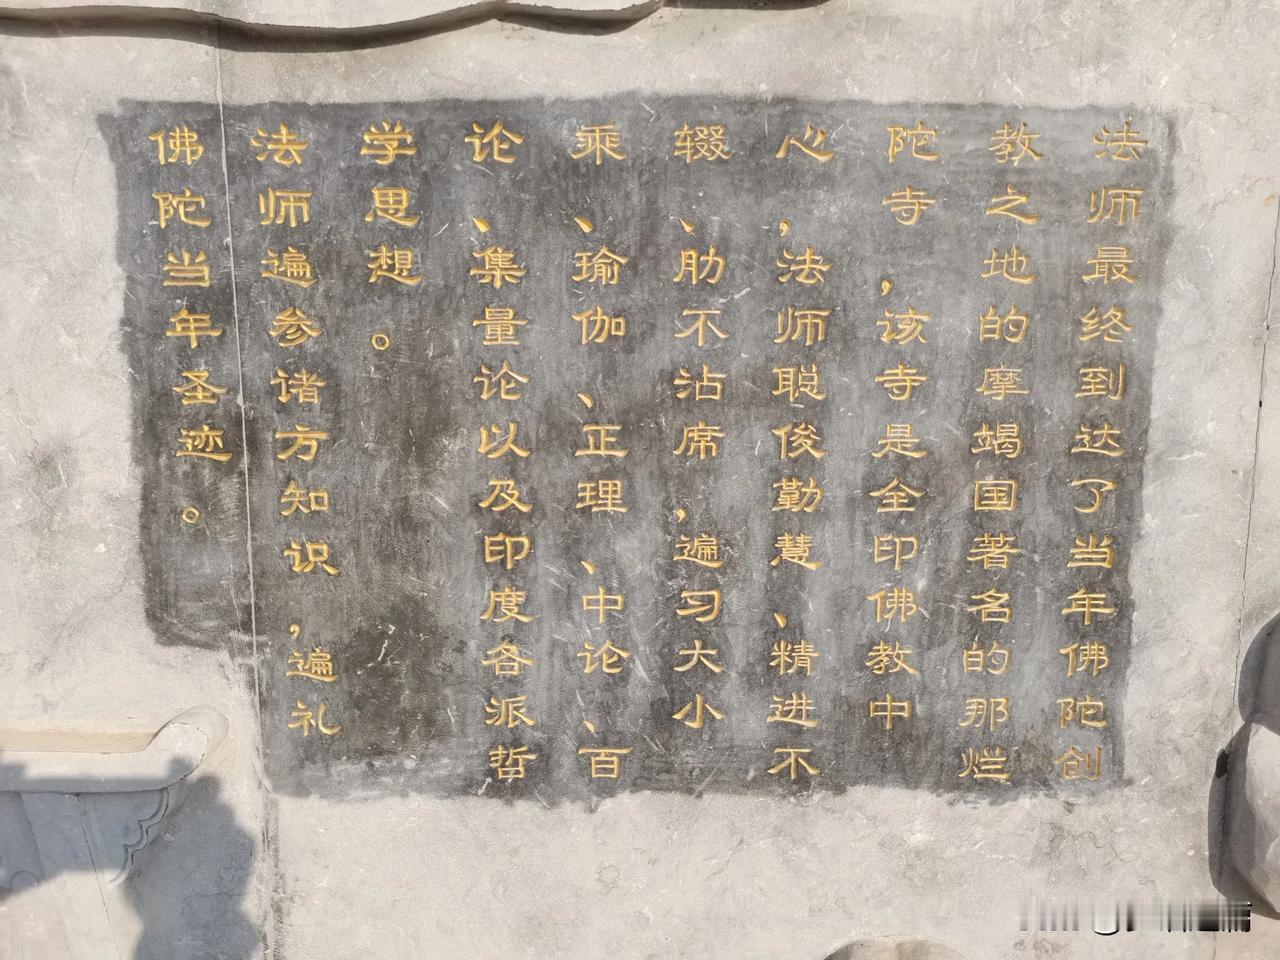 法师最终到达了当年佛陀创
教之地的摩竭国著名的那烂
陀寺，该寺是全印佛教中
心，法师聪俊勤慧、精进不
辍、肋不沾席，遍习大小
乘、瑜伽、正理、中论、百
论、集量论以及印度各派哲
学思想。
法师遍参诸方知识，遍礼
佛陀当年圣迹。